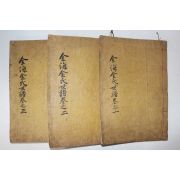 金海金氏世譜卷之一
金海金氏世譜卷之二
金海金氏世譜卷之三